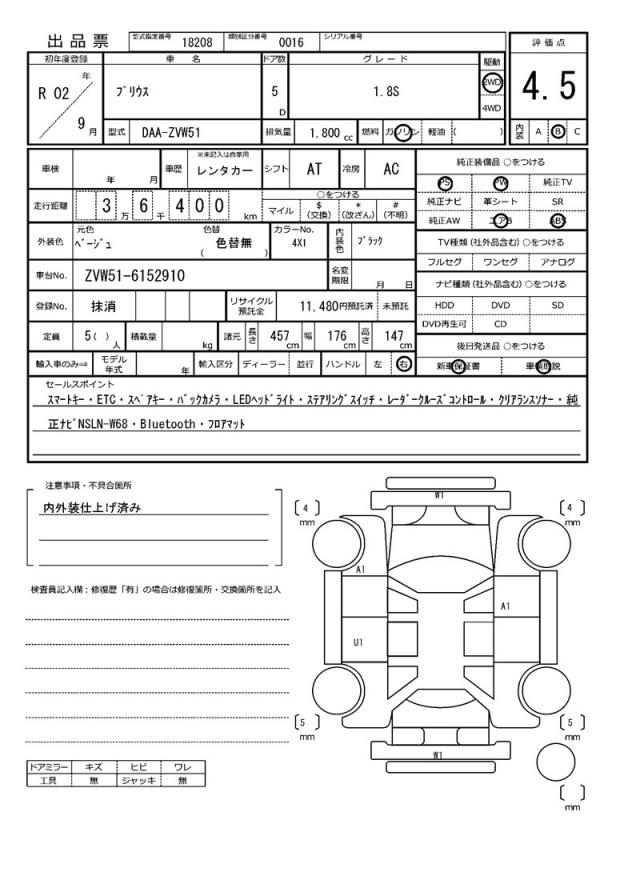 出品票 型式指定番号 18208 類別区分番号 0016 シリアル番号
評価点
4.5
内装 A B C
初年度登録 車名 ドア数 グレード 駆動
R 02 年 9 月
プリウス 5 D 1.8S 2WD 4WD
型式 DAA-ZVW51 排気量 1.800 cc 燃料 ガソリン 軽油 ( )
車検 年 月 車歴 ※未記入は自家用 レンタカー シフト AT 冷房 AC
走行距離 3 6 万 4 0 0 千 km
○をつける
マイル $ (交換) * (改ざん) # (不明)
外装色 元色 ベージュ 色替 ( 色替無 ) カラーNo. 4X1 内装色 ブラック
車台No. ZVW51-6152910 名変期限 月 日
登録No. 抹消 リサイクル預託金 11,480円預託済 未預託
定員 5( ) 人 積載量 kg 諸元 長さ 457 cm 幅 176 cm 高さ 147 cm
輸入車のみ⇒ モデル年式 年 輸入区分 ディーラー 並行 ハンドル 左 右
純正装備品 ○をつける
PS PW 純正TV
純正ナビ 革シート SR
純正AW エアB ABS
TV種類(社外品含む)○をつける
フルセグ ワンセグ アナログ
ナビ種類(社外品含む)○をつける
HDD DVD SD
DVD再生可 CD
後日発送品 ○をつける
新車保証書 車輌取説
セールスポイント
スマートキー・ETC・スペアキー・バックカメラ・LEDヘッドライト・ステアリングスイッチ・レーダークルーズコントロール・クリアランスソナー・純
正ナビNSLN-W68・Bluetooth・フロアマット
注意事項・不具合箇所
内外装仕上げ済み
検査員記入欄：修復歴「有」の場合は修復箇所・交換箇所を記入
ドアミラー キズ ヒビ ワレ
工具 無 ジャッキ 無
W1
4 mm
4 mm
A1
A1
U1
5 mm
5 mm
W1
mm